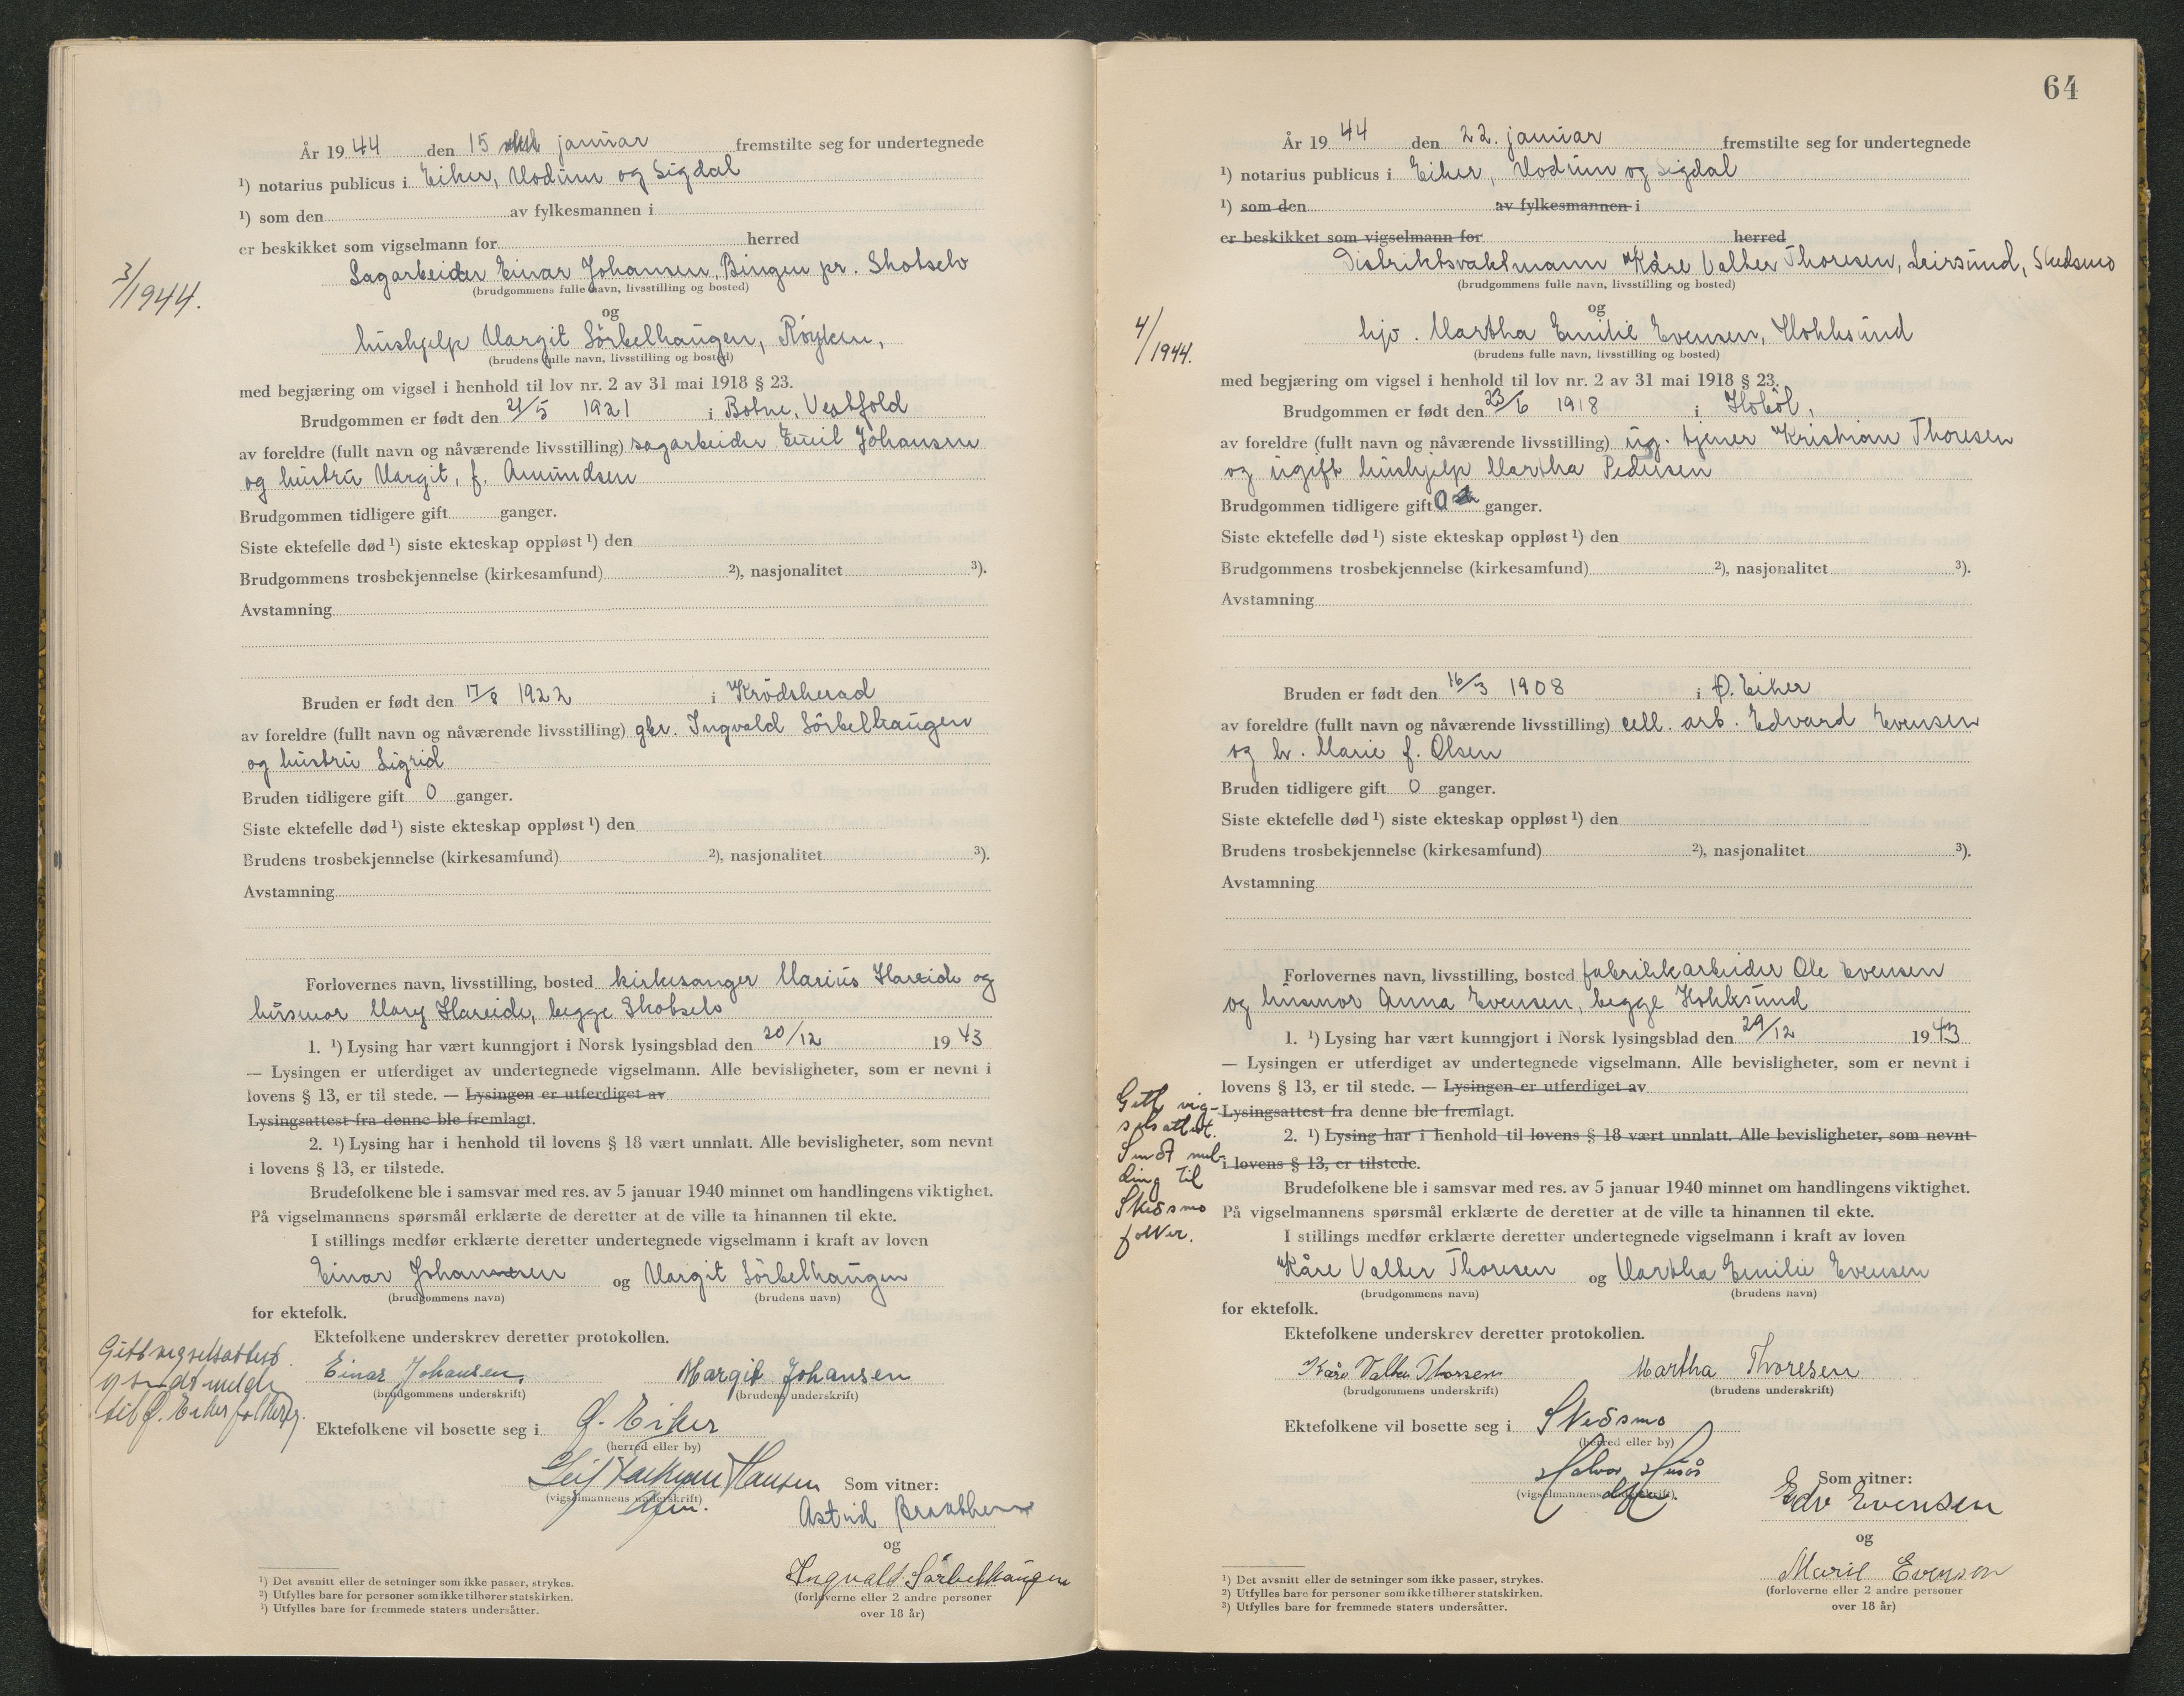 År 1944 den 15 januar fremstilte seg for undertegnede
¹) notarius publicus i Eiker, Modum og Sigdal
¹) som den av fylkesmannen i
er beskikket som vigselmann for herred
3/1944.
Sagarbeider Einar Johansen, Bingen pr. Skotselv
(brudgommens fulle navn, livsstilling og bosted)
og
hushjelp Margit Sörbelhaugen, Røyken,
(brudens fulle navn, livsstilling og bosted)
med begjæring om vigsel i henhold til lov nr. 2 av 31 mai 1918 § 23.
Brudgommen er født den 21/5 1921 i Botne, Vestfold
av foreldre (fullt navn og nåværende livsstilling) sagarbeider Emil Johansen
og hustru Margit, f. Amundsen
Brudgommen tidligere gift ganger.
Siste ektefelle død ¹) siste ekteskap oppløst ¹) den
Brudgommens trosbekjennelse (kirkesamfund) ²), nasjonalitet ³).
Avstamning
Bruden er født den 17/8 1922 i Krödsherad
av foreldre (fullt navn og nåværende livsstilling) gbr. Ingvald Sörbelhaugen
og hustru Sigrid
Bruden tidligere gift 0 ganger.
Siste ektefelle død ¹) siste ekteskap oppløst ¹) den
Brudens trosbekjennelse (kirkesamfund) ²), nasjonalitet ³).
Avstamning
Forlovernes navn, livsstilling, bosted kirkesanger Marius Hareide og
husmor Mary Hareide, begge Skotselv
1. ¹) Lysing har vært kunngjort i Norsk lysingsblad den 20/12 1943
— Lysingen er utferdiget av undertegnede vigselmann. Alle bevisligheter, som er nevnt i
lovens § 13, er til stede. — Lysingen er utferdiget av
Lysingsattest fra denne ble fremlagt.
2. ¹) Lysing har i henhold til lovens § 18 vært unnlatt. Alle bevisligheter, som nevnt
i lovens § 13, er tilstede.
Brudefolkene ble i samsvar med res. av 5 januar 1940 minnet om handlingens viktighet.
På vigselmannens spørsmål erklærte de deretter at de ville ta hinannen til ekte.
I stillings medfør erklærte deretter undertegnede vigselmann i kraft av loven
Einar Johansen og Margit Sörbelhaugen
(brudgommens navn) (brudens navn)
for ektefolk.
Ektefolkene underskrev deretter protokollen.
Gitt vigselsattest
og sendt melding
til Ø. Eiker folkereg.
Einar Johansen. Margit Johansen
(brudgommens underskrift) (brudens underskrift)
Ektefolkene vil bosette seg i Ø. Eiker
(herred eller by)
Leif Hansen Som vitner:
(vigselmannens underskrift)
Astrid Braathen
og
Ingvald Sörbelhaugen
(forloverne eller 2 andre personer
over 18 år)
¹) Det avsnitt eller de setninger som ikke passer, strykes.
²) Utfylles bare for personer som ikke tilhører statskirken.
³) Utfylles bare for fremmede staters undersåtter.
64
År 1944 den 22. januar fremstilte seg for undertegnede
¹) notarius publicus i Eiker, Modum og Sigdal
¹) som den av fylkesmannen i
er beskikket som vigselmann for herred
Distriktsvaktmann Kåre Valter Thoresen, Leirsund, Skedsmo
(brudgommens fulle navn, livsstilling og bosted)
og
4/1944.
hjv. Martha Emilie Evensen, Hokksund
(brudens fulle navn, livsstilling og bosted)
med begjæring om vigsel i henhold til lov nr. 2 av 31 mai 1918 § 23.
Brudgommen er født den 23/6 1918 i Hobøl,
av foreldre (fullt navn og nåværende livsstilling) ug. tjener Kristian Thoresen
og ugift hushjelp Martha Pedersen
Brudgommen tidligere gift 0 ganger.
Siste ektefelle død ¹) siste ekteskap oppløst ¹) den
Brudgommens trosbekjennelse (kirkesamfund) ²), nasjonalitet ³).
Avstamning
Bruden er født den 16/3 1908 i Ø. Eiker
av foreldre (fullt navn og nåværende livsstilling) cell. arb. Edvard Evensen
og h. Marie f. Olsen
Bruden tidligere gift 0 ganger.
Siste ektefelle død ¹) siste ekteskap oppløst ¹) den
Brudens trosbekjennelse (kirkesamfund) ²), nasjonalitet ³).
Avstamning
Forlovernes navn, livsstilling, bosted fabrikkarbeider Ole Evensen
og husmor Anna Evensen, begge Hokksund
1. ¹) Lysing har vært kunngjort i Norsk lysingsblad den 29/12 1943
— Lysingen er utferdiget av undertegnede vigselmann. Alle bevisligheter, som er nevnt i
lovens § 13, er til stede. — Lysingen er utferdiget av
Lysingsattest fra denne ble fremlagt.
2. ¹) Lysing har i henhold til lovens § 18 vært unnlatt. Alle bevisligheter, som nevnt
i lovens § 13, er tilstede.
Gitt vig-
selsattest.
Sendt mel-
ding til
Skedsmo
folker.
Brudefolkene ble i samsvar med res. av 5 januar 1940 minnet om handlingens viktighet.
På vigselmannens spørsmål erklærte de deretter at de ville ta hinannen til ekte.
I stillings medfør erklærte deretter undertegnede vigselmann i kraft av loven
Kåre Valter Thoresen og Martha Emilie Evensen
(brudgommens navn) (brudens navn)
for ektefolk.
Ektefolkene underskrev deretter protokollen.
Kåre Valter Thoresen Martha Thoresen
(brudgommens underskrift) (brudens underskrift)
Ektefolkene vil bosette seg i Skedsmo
(herred eller by)
Halvor Som vitner:
(vigselmannens underskrift).
Edv Evensen
og
Marie Evensen
(forloverne eller 2 andre personer
over 18 år)
¹) Det avsnitt eller de setninger som ikke passer, strykes.
²) Utfylles bare for personer som ikke tilhører statskirken.
³) Utfylles bare for fremmede staters undersåtter.